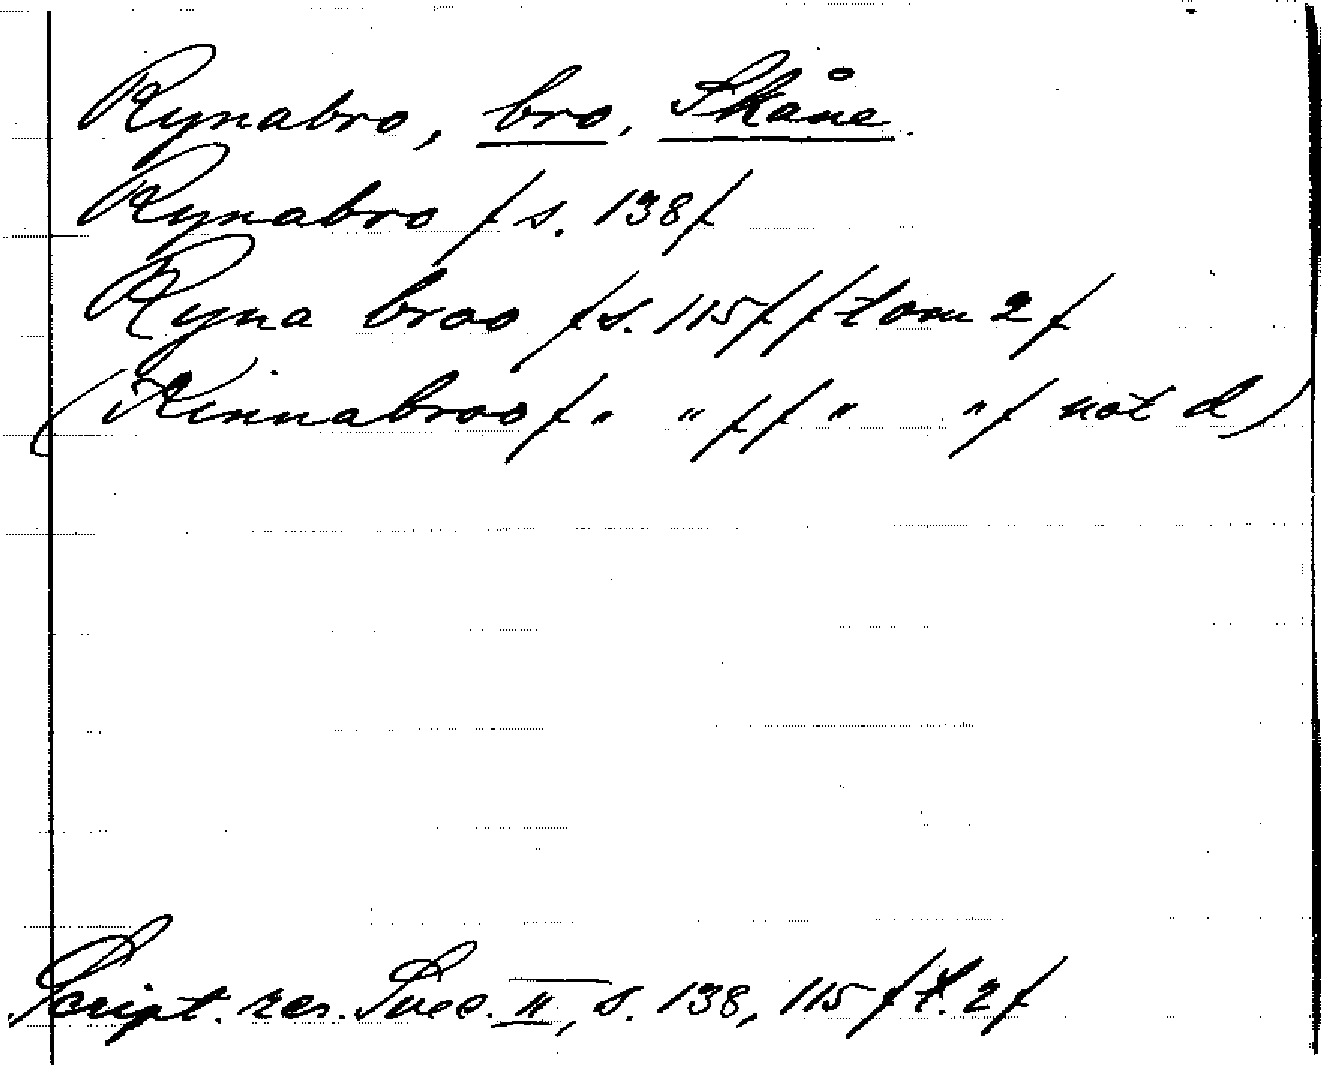 Rynabro, bro, Skåne.
Rynabro /s. 138/
Ryna broo /s. 115/ /tom 2/
(Rinnabroo /„ „/ /„ „/ not d)
Script. rer. Svec. II, s. 138, 115 /t. 2/